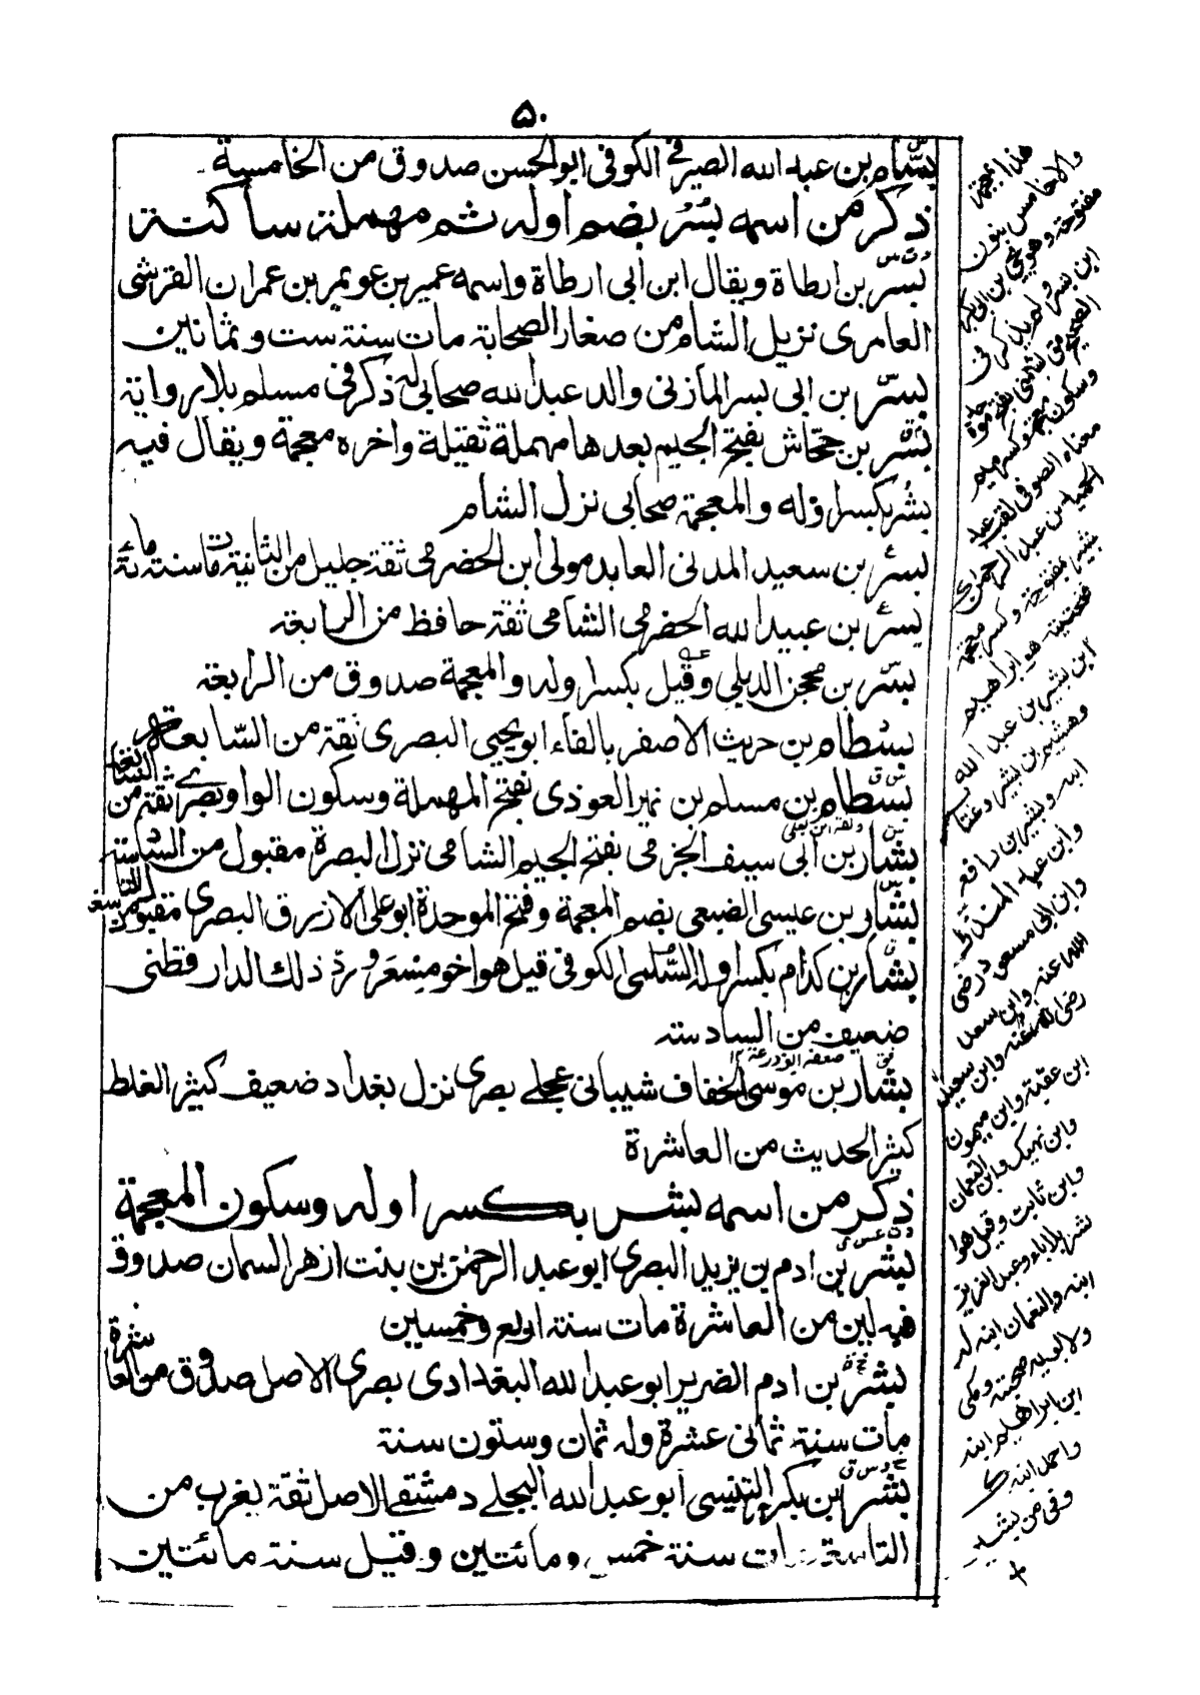 ۵۰
بسّام بن عبد الله الصيرفى الكوفى ابو الحسن صدوق من الخامسة
ذكر من اسمه بُسْر بضم اوله ثم مهملة ساكنة
د ت س
بسّر بن ارطاة ويقال ابن ابى ارطاة واسمه عمير بن عويمر بن عمران القرشى
العامرى نزيل الشام من صغار الصحابة مات سنة ست وثمانين
بسّر بن ابى بسر المازنى والد عبد الله صحابى له ذكر فى مسلم بلا رواية
بسّر بن جحّاش بفتح الجيم بعدها مهملة ثقيلة واخره معجمة ويقال فيه
بشر بكسر اوله والمعجمة صحابى نزل الشام
بسر بن سعيد المدنى العابد مولى ابن الحضرمى ثقة جليل من الثانية مات سنة مائة
بسر بن عبيد الله الحضرمى الشامى ثقة حافظ من الرابعة
بسّر بن محجن الديلى وقيل بكسر اوله والمعجمة صدوق من الرابعة
بسطام بن حريث الاصفر بالفاء ابو يحيى البصرى ثقة من السّابعة
س ق
بسطام بن مسلم بن نمير العوذى بفتح المهملة وسكون الواو بصرى ثقة من السابعة
بشار بن ابى سيف الجرمى بفتح الجيم الشامى نزل البصرة مقبول من السادسة
بشّار بن عيسى الضبعى بضم المعجمة وفتح الموحدة ابو على الازرق البصرى مقبول من التاسعة
بشّار بن كدام بكسر اوله السّلمى الكوفى قيل هو اخو مِسْعَر ورد ذلك الدارقطنى
ضعيف من السادسة
فق ضعفه ابو زرعة ۱۲
بشّار بن موسى الخفاف شيبانى عجلى بصرى نزل بغداد ضعيف كثير الغلط
كثير الحديث من العاشرة
ذكر من اسمه بشر بكسر اوله وسكون المعجمة
د ت عس ق
بشر بن ادم بن يزيد البصرى ابو عبد الرحمن بن بنت ازهر السمان صدوق
فيه لين من العاشرة مات سنة اربع وخمسين
بشر بن ادم الضرير ابو عبد الله البغدادى بصرى الاصل صدوق من العاشرة
مات سنة ثمانى عشرة وله ثمان وستون سنة
خ د س ق
بشر بن بكر التنيسى ابو عبد الله البجلى دمشقى الاصل ثقة يغرب من
التاسعة مات سنة خمس ومائتين وقيل سنة مائتين
هذا بمعجمة
والا خامس بنون
مفتوحة وهو يحيى بن ابى بكر
ابن بسر ولم يذكر فى
وسكون معجمة وكسر ميم
معناه الصوفى لقب عبد
الحميد بن عبد الرحمن
بشير بمفتوحة وكسر معجمة
فتحتية هو ابراهيم
ابن بشير بن عبد الله
وهشيم بن بشير وعنا
ابنه وبشير بن رافع
وابن عبد المنذر
وابن ابى مسعود رضى
الله عنه وابن سعد
رضى الله عنه وابن سعيد
ابن عقبة وابن ميمون
وابن نهيك وابن النعمان
وابن ثابت وقيل هو
بشر بلا ياء وعبد العزيز
ابنه والنعمان ابنه له
ولابيه صحبة ومكى
ابن ابراهيم ابنه
واحمد ابنه
وفى من بشير